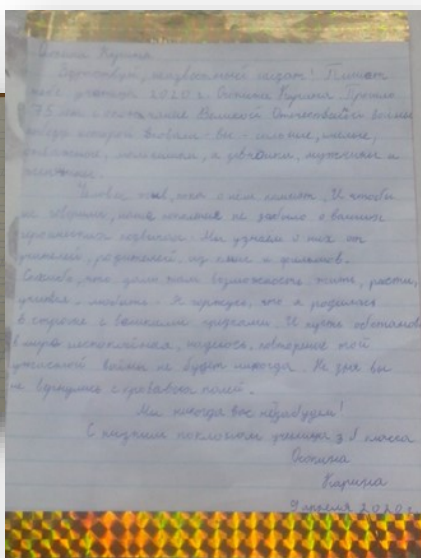 Осокина Карина
Здравствуй, неизвестный солдат! Пишет
тебе ученица 2020 г. Осокина Карина. Прошло
75 лет с окончания Великой Отечественной войны
победа которой ковали - вы - сильные, смелые,
отважные, мальчишки, и девчонки, мужчины и
женщины.
Человек жив, пока о нём помнят. И чтобы
не говорили, наше поколение не забыло о ваших
героических подвигах. Мы узнаем о них от
учителей, родителей, из книг и фильмов.
Спасибо, что дали нам возможность жить, расти,
учиться, любить. Я горжусь, что я родилась
в стране с великими предками. И пусть обстановка
в мире неспокойная, надеюсь, повторения той
ужасной войны не будет никогда. Не зря вы
не вернулись с кровавых полей.
Мы никогда вас не забудем!
С низким поклоном ученица 3 класса
Осокина
Карина
9 апреля 2020 г.